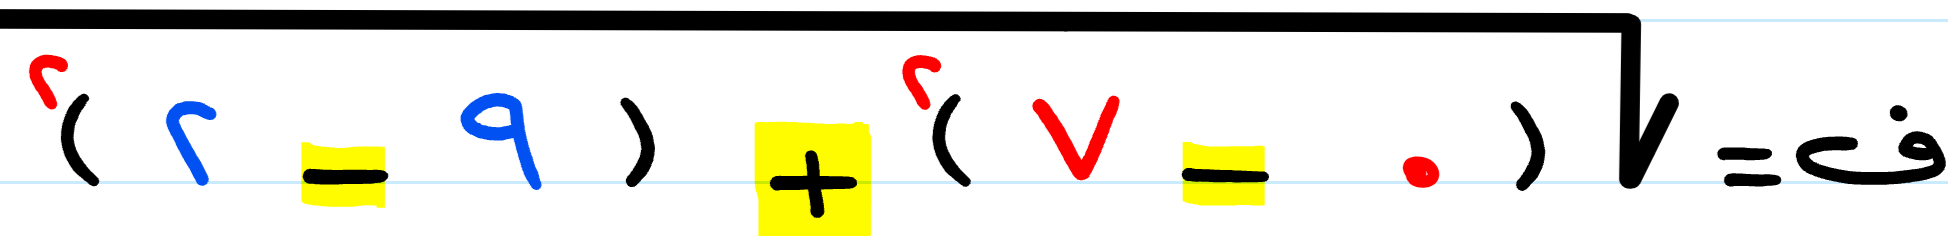 ف = √(٠ − ٧)٢ + (٩ − ٢)٢